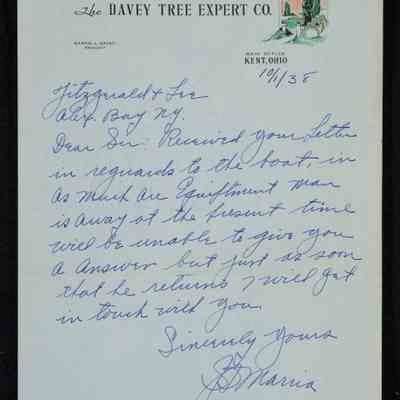 The DAVEY TREE EXPERT CO.
MARTIN L. DAVEY
PRESIDENT
MAIN OFFICE
KENT, OHIO
10/1/38
Fitzgerald & Lee
Alex. Bay NY.
Dear Sir: Received your Letter
in reguards to the boat in
as much are Equiftment man
is away at the present time
will be unable to give you
a Answer but just as soon
that he returns I will get
in touch with you.
Sincerely yours